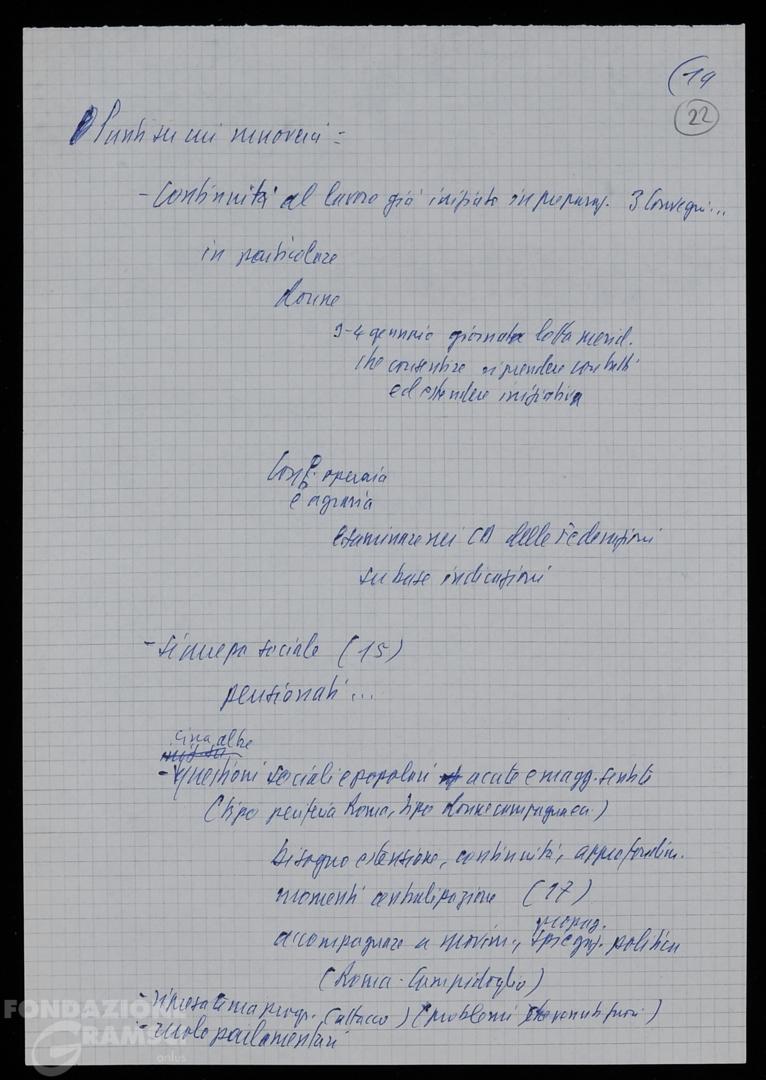 (19
22
Punti su cui muoverci =
- Continuità al lavoro già iniziato in preparaz. 3 Convegni...
in particolare
donne
3-4 gennaio giornata lotta merid.
che consentire riprendere contatti
ed estendere iniziativa
Conf. operaia
e agraria
esaminare nei CD delle Federazioni
su base indicazioni
- sicurezza sociale (15)
pensionati...
circa altre
- questioni sociali e popolari acute e magg. sentite
(tipo periferia Roma, tipo donne campagna ea.)
bisogno estensione, continuità, approfondim.
momenti centralizzazione (17)
propag.
accompagnare a movim., spiegaz. politica
(Roma - Campidoglio)
- ripresa tema progr. (attacco) (problemi venuti fuori)
- ruolo parlamentari
FONDAZIONE
GRAMSCI
onlus